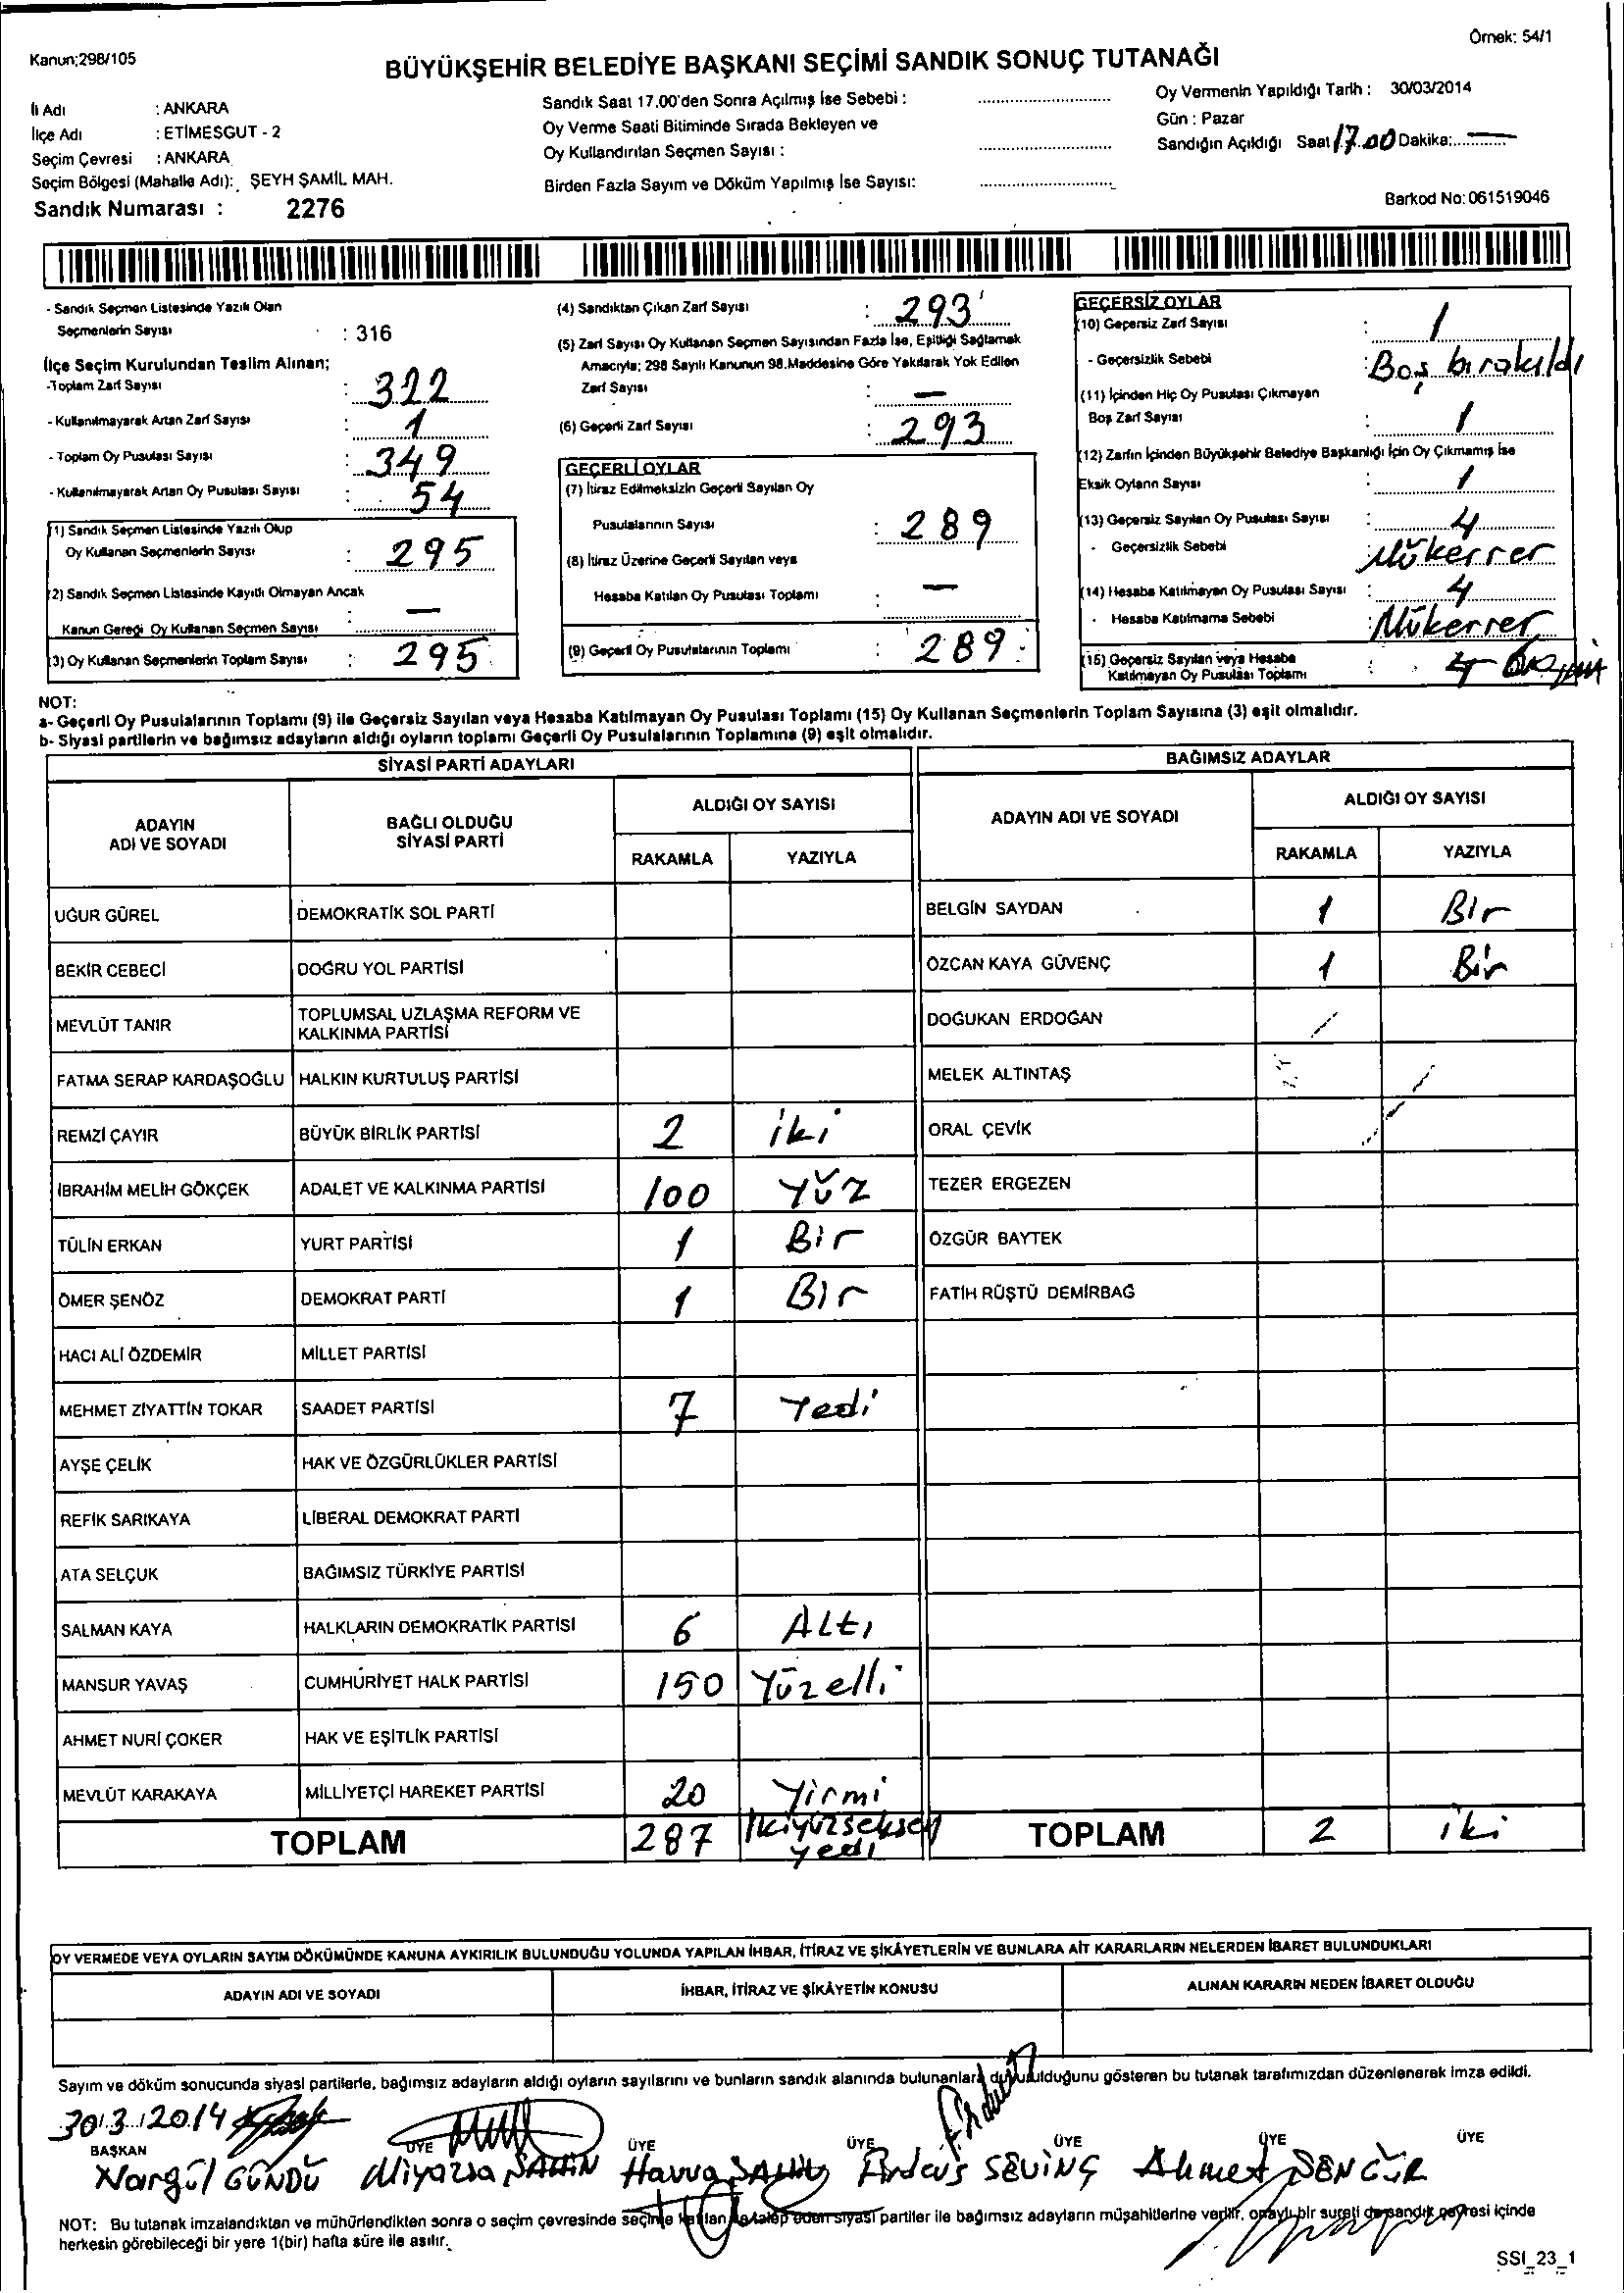 Kanun;298/105
Örnek: 54/1
BÜYÜKŞEHİR BELEDİYE BAŞKANI SEÇİMİ SANDIK SONUÇ TUTANAĞI
İl Adı : ANKARA
İlçe Adı : ETİMESGUT - 2
Seçim Çevresi : ANKARA
Seçim Bölgesi (Mahalle Adı): ŞEYH ŞAMİL MAH.
Sandık Numarası : 2276
Sandık Saat 17.00'den Sonra Açılmış İse Sebebi :
Oy Verme Saati Bitiminde Sırada Bekleyen ve
Oy Kullandırılan Seçmen Sayısı :
Birden Fazla Sayım ve Döküm Yapılmış İse Sayısı:
Oy Vermenin Yapıldığı Tarih : 30/03/2014
Gün : Pazar
Sandığın Açıldığı Saat 17.00 Dakika:
Barkod No: 061519046
- Sandık Seçmen Listesinde Yazılı Olan
Seçmenlerin Sayısı : 316
İlçe Seçim Kurulundan Teslim Alınan;
-Toplam Zarf Sayısı : 322
- Kullanılmayarak Artan Zarf Sayısı : 1
- Toplam Oy Pusulası Sayısı : 349
- Kullanılmayarak Artan Oy Pusulası Sayısı : 54
(1) Sandık Seçmen Listesinde Yazılı Olup
Oy Kullanan Seçmenlerin Sayısı : 295
(2) Sandık Seçmen Listesinde Kayıtlı Olmayan Ancak
Kanun Gereği Oy Kullanan Seçmen Sayısı : —
(3) Oy Kullanan Seçmenlerin Toplam Sayısı : 295
(4) Sandıktan Çıkan Zarf Sayısı : 293
(5) Zarf Sayısı Oy Kullanan Seçmen Sayısından Fazla İse, Eşitliği Sağlamak
Amacıyla; 298 Sayılı Kanunun 98.Maddesine Göre Yakılarak Yok Edilen
Zarf Sayısı : —
(6) Geçerli Zarf Sayısı : 293
GEÇERLİ OYLAR
(7) İtiraz Edilmeksizin Geçerli Sayılan Oy
Pusulalarının Sayısı : 289
(8) İtiraz Üzerine Geçerli Sayılan veya
Hesaba Katılan Oy Pusulası Toplamı : —
(9) Geçerli Oy Pusulalarının Toplamı : 289
GEÇERSİZ OYLAR
(10) Geçersiz Zarf Sayısı : 1
- Geçersizlik Sebebi : Boş bırakıldı
(11) İçinden Hiç Oy Pusulası Çıkmayan
Boş Zarf Sayısı : 1
(12) Zarfın İçinden Büyükşehir Belediye Başkanlığı İçin Oy Çıkmamış İse
Eksik Oyların Sayısı : 1
(13) Geçersiz Sayılan Oy Pusulası Sayısı : 4
- Geçersizlik Sebebi Mükerrer
(14) Hesaba Katılmayan Oy Pusulası Sayısı : 4
- Hesaba Katılmama Sebebi : Mükerrer
(15) Geçersiz Sayılan veya Hesaba
Katılmayan Oy Pusulası Toplamı : 4
NOT:
a- Geçerli Oy Pusulalarının Toplamı (9) ile Geçersiz Sayılan veya Hesaba Katılmayan Oy Pusulası Toplamı (15) Oy Kullanan Seçmenlerin Toplam Sayısına (3) eşit olmalıdır.
b- Siyasi partilerin ve bağımsız adayların aldığı oyların toplamı Geçerli Oy Pusulalarının Toplamına (9) eşit olmalıdır.
SİYASİ PARTİ ADAYLARI
ADAYIN
ADI VE SOYADI
BAĞLI OLDUĞU
SİYASİ PARTİ
ALDIĞI OY SAYISI
RAKAMLA YAZIYLA
UĞUR GÜREL DEMOKRATİK SOL PARTİ
BEKİR CEBECİ DOĞRU YOL PARTİSİ
MEVLÜT TANIR TOPLUMSAL UZLAŞMA REFORM VE
KALKINMA PARTİSİ
FATMA SERAP KARDAŞOĞLU HALKIN KURTULUŞ PARTİSİ
REMZİ ÇAYIR BÜYÜK BİRLİK PARTİSİ 2 iki
İBRAHİM MELİH GÖKÇEK ADALET VE KALKINMA PARTİSİ 100 Yüz
TÜLİN ERKAN YURT PARTİSİ 1 Bir
ÖMER ŞENÖZ DEMOKRAT PARTİ 1 Bir
HACI ALİ ÖZDEMİR MİLLET PARTİSİ
MEHMET ZİYATTİN TOKAR SAADET PARTİSİ 7 Yedi
AYŞE ÇELİK HAK VE ÖZGÜRLÜKLER PARTİSİ
REFİK SARIKAYA LİBERAL DEMOKRAT PARTİ
ATA SELÇUK BAĞIMSIZ TÜRKİYE PARTİSİ
SALMAN KAYA HALKLARIN DEMOKRATİK PARTİSİ 6 Altı
MANSUR YAVAŞ CUMHURİYET HALK PARTİSİ 150 Yüzelli
AHMET NURİ ÇOKER HAK VE EŞİTLİK PARTİSİ
MEVLÜT KARAKAYA MİLLİYETÇİ HAREKET PARTİSİ 20 Yirmi
TOPLAM 287 İkiyüzseksen
yedi
BAĞIMSIZ ADAYLAR
ADAYIN ADI VE SOYADI
ALDIĞI OY SAYISI
RAKAMLA YAZIYLA
BELGİN SAYDAN 1 Bir
ÖZCAN KAYA GÜVENÇ 1 Bir
DOĞUKAN ERDOĞAN
MELEK ALTINTAŞ
ORAL ÇEVİK
TEZER ERGEZEN
ÖZGÜR BAYTEK
FATİH RÜŞTÜ DEMİRBAĞ
TOPLAM 2 iki
OY VERMEDE VEYA OYLARIN SAYIM DÖKÜMÜNDE KANUNA AYKIRILIK BULUNDUĞU YOLUNDA YAPILAN İHBAR, İTİRAZ VE ŞİKÂYETLERİN VE BUNLARA AİT KARARLARIN NELERDEN İBARET BULUNDUKLARI
ADAYIN ADI VE SOYADI İHBAR, İTİRAZ VE ŞİKÂYETİN KONUSU ALINAN KARARIN NEDEN İBARET OLDUĞU
Sayım ve döküm sonucunda siyasi partilerle, bağımsız adayların aldığı oyların sayılarını ve bunların sandık alanında bulunanlara duyurulduğunu gösteren bu tutanak tarafımızdan düzenlenerek imza edildi.
30/3/2014
BAŞKAN ÜYE ÜYE ÜYE ÜYE ÜYE ÜYE
Nargül GÜNDÜ Niyazia ŞAHİN Havva ŞAHİN SEVİNÇ Ahmet
NOT: Bu tutanak imzalandıktan ve mühürlendikten sonra o seçim çevresinde seçime katılan ve talep eden siyasi partiler ile bağımsız adayların müşahitlerine verilir, onaylı bir sureti de sandık çevresi içinde
herkesin görebileceği bir yere 1(bir) hafta süre ile asılır.
SSI_23_1